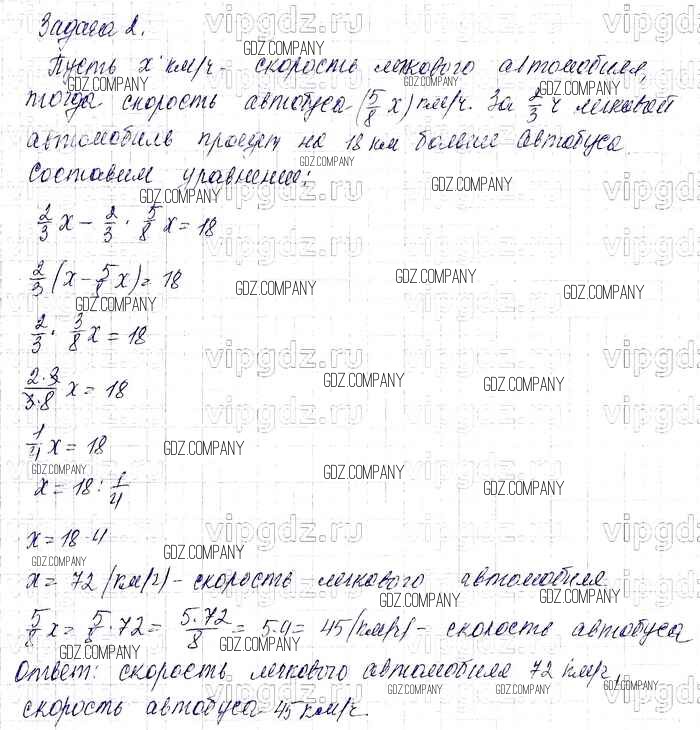 Задача 2.
Пусть x км/ч - скорость легкового автомобиля,
тогда скорость автобуса (5/8 x) км/ч. За 2/3 ч легковой
автомобиль проедет на 18 км больше автобуса.
Составим уравнение:
2/3 x - 2/3 · 5/8 x = 18
2/3 (x - 5/8 x) = 18
2/3 · 3/8 x = 18
2·3/3·8 x = 18
1/4 x = 18
x = 18 : 1/4
x = 18·4
x = 72 (км/ч) - скорость легкового автомобиля
5/8 x = 5/8 · 72 = 5·72/8 = 5·9 = 45 (км/ч) - скорость автобуса
Ответ: скорость легкового автомобиля 72 км/ч,
скорость автобуса - 45 км/ч.
vipgdz.ru
GDZ.COMPANY